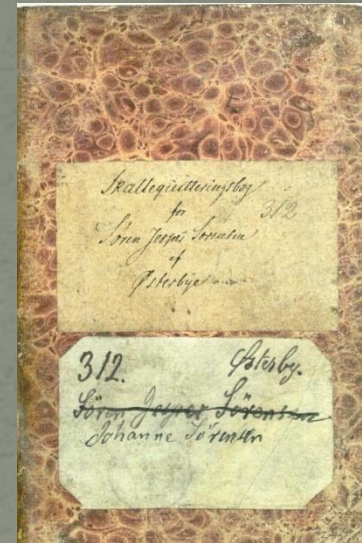 Skattequitteringsbog
for 312
Søren Jespers Sørensen
af
Østerbye
312. Østerby.
Sören Jesper Sörensen
Johanne Sørensen